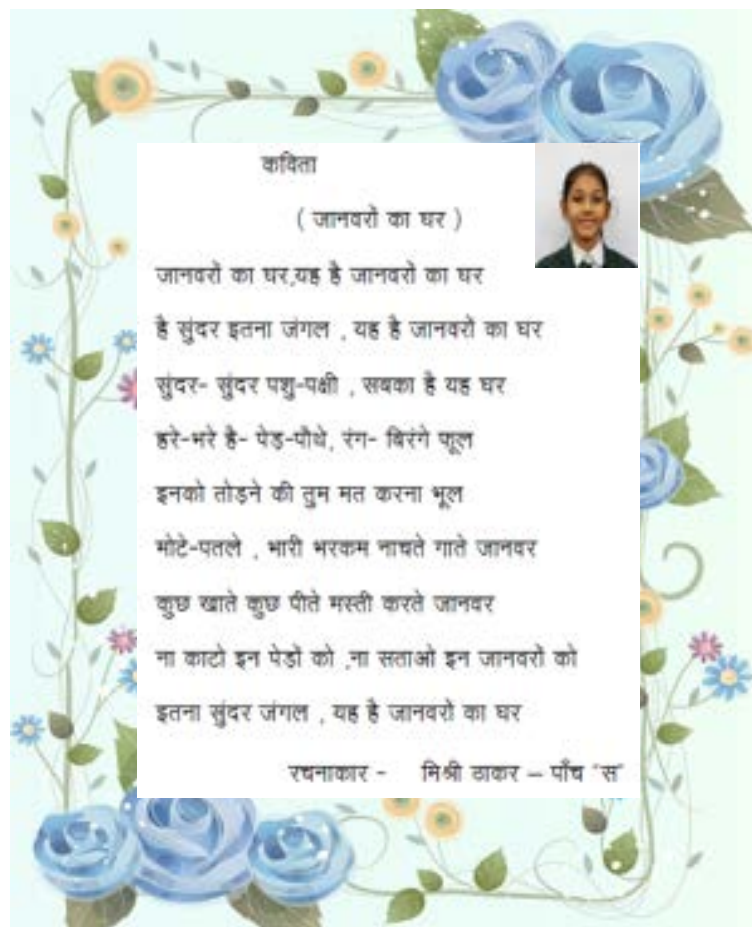 कविता
( जानवरों का घर )
जानवरों का घर,यह है जानवरों का घर
है सुंदर इतना जंगल , यह है जानवरों का घर
सुंदर- सुंदर पशु-पक्षी , सबका है यह घर
हरे-भरे है- पेड़-पौधे, रंग- बिरंगे फूल
इनको तोड़ने की तुम मत करना भूल
मोटे-पतले , भारी भरकम नाचते गाते जानवर
कुछ खाते कुछ पीते मस्ती करते जानवर
ना काटो इन पेड़ों को ,ना सताओ इन जानवरों को
इतना सुंदर जंगल , यह है जानवरों का घर
रचनाकार - मिश्री ठाकर – पाँच "स"